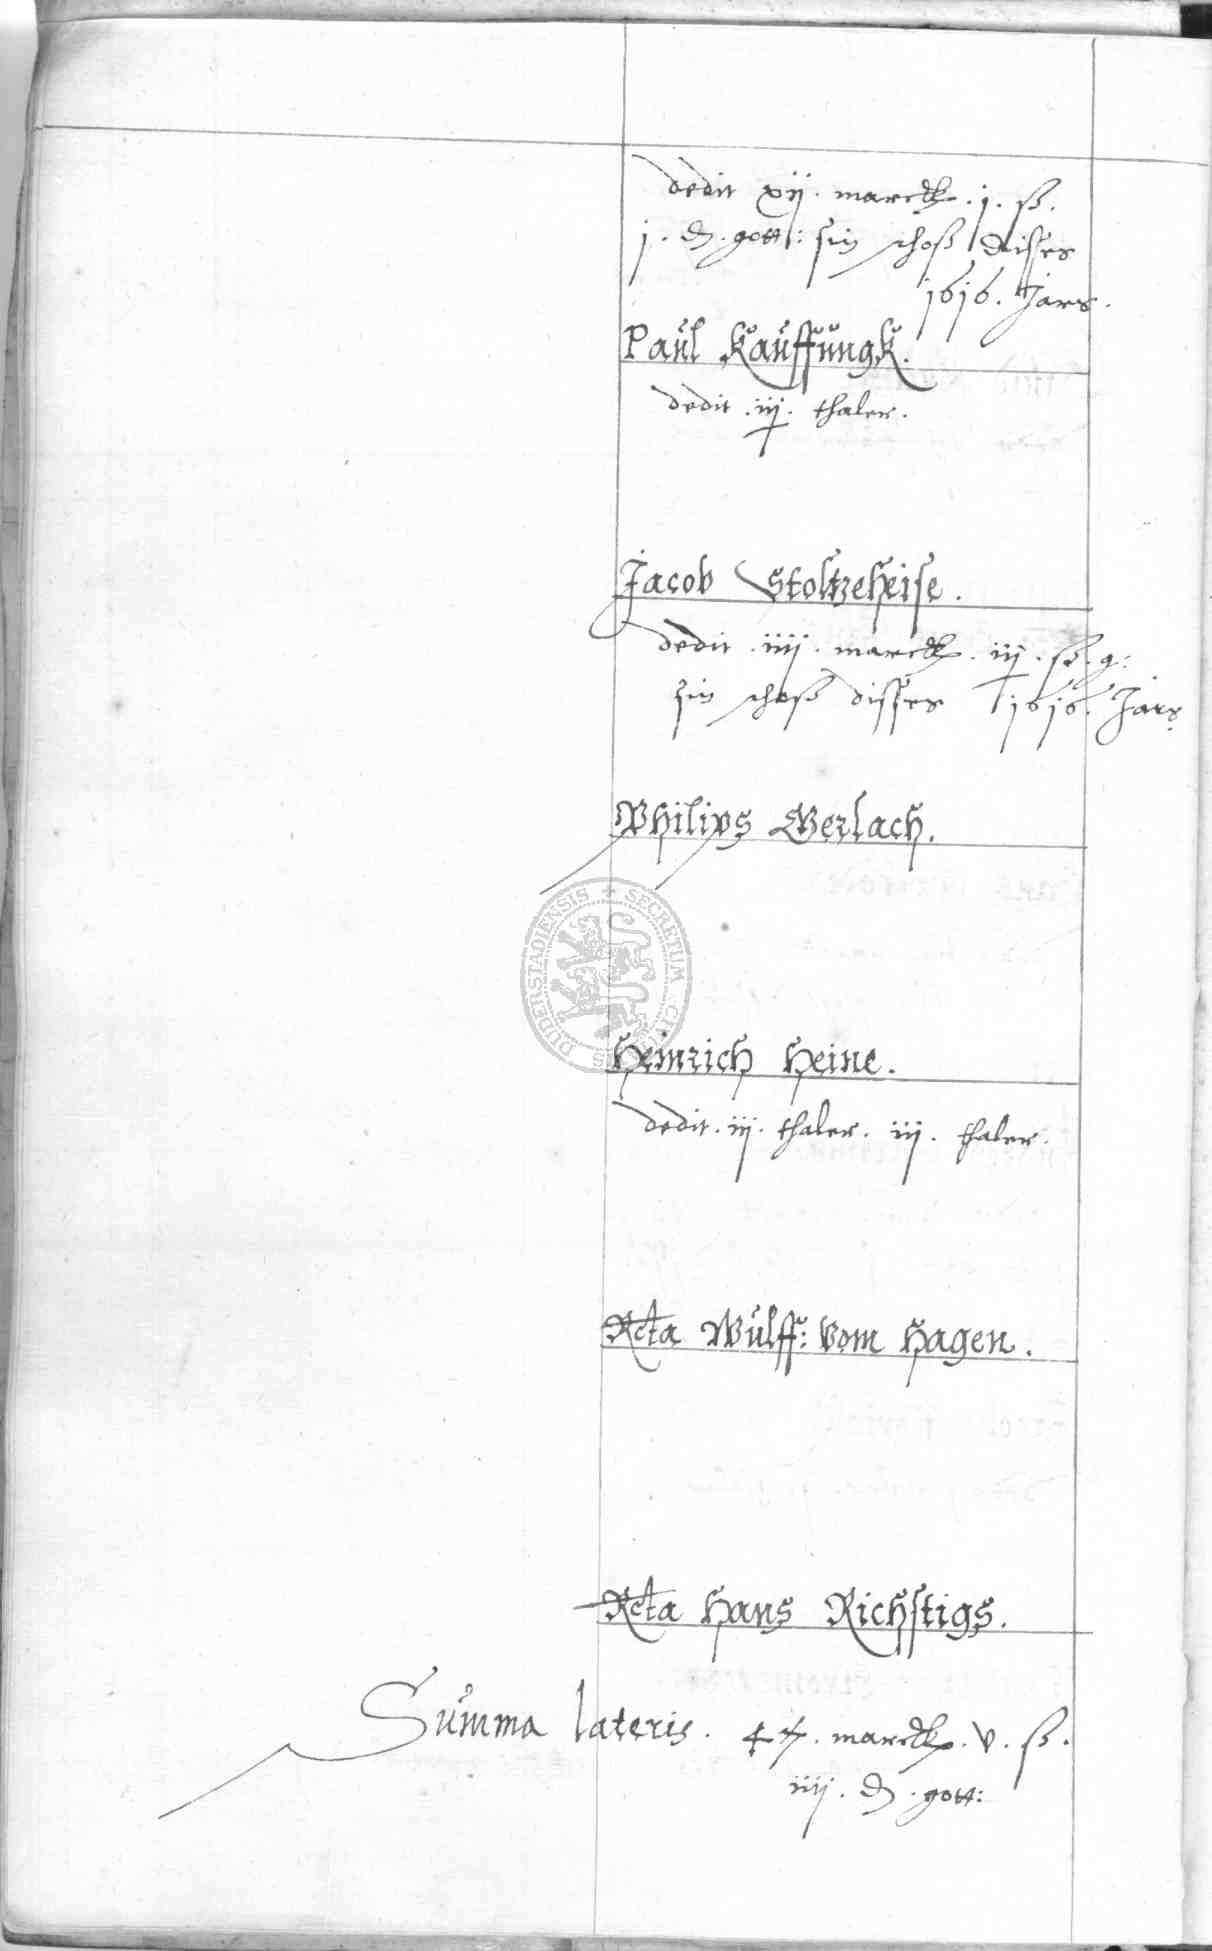 dedit xij. marck. j. ß.
j. d. gott: sin schoß disses
1616. Jars.
Paul Kauffungk.
dedit .iij. thaler.
Jacob Stoltzeheise.
dedit .iiij. marck. iij. ß. g:
sin schoß disses 1616. Jars
Philips Gerlach.
DUDERSTADIENSIS + SECRETUM
Heinrich Heine.
dedit. iij. thaler. iij. thaler.
Rcta Wulff: vom Hagen.
Rcta Hans Richstigs.
Summa lateris. marck. v. ß.
iiij. d. gott: